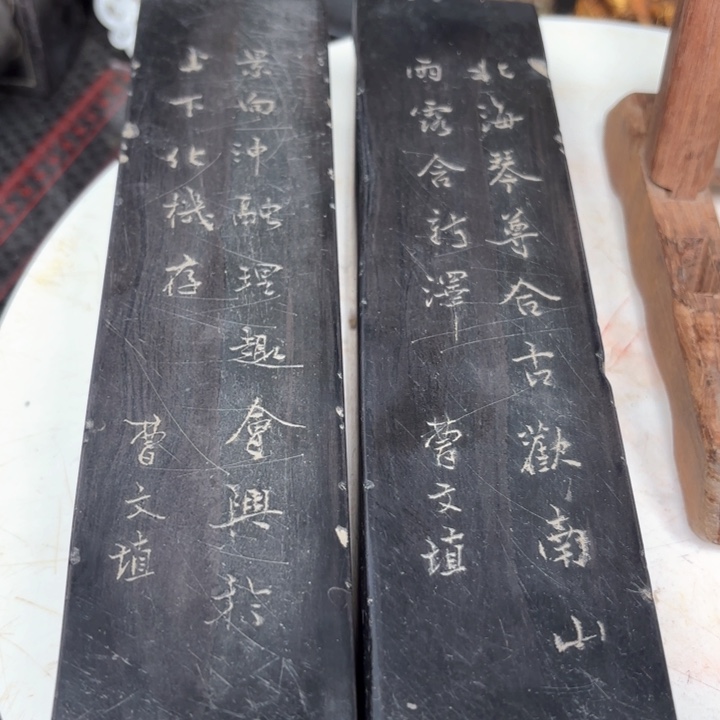 北海琴尊合古歡南山
雨露含新澤
曹文埴
景向沖融理趣會興於
上下化機存
曹文埴